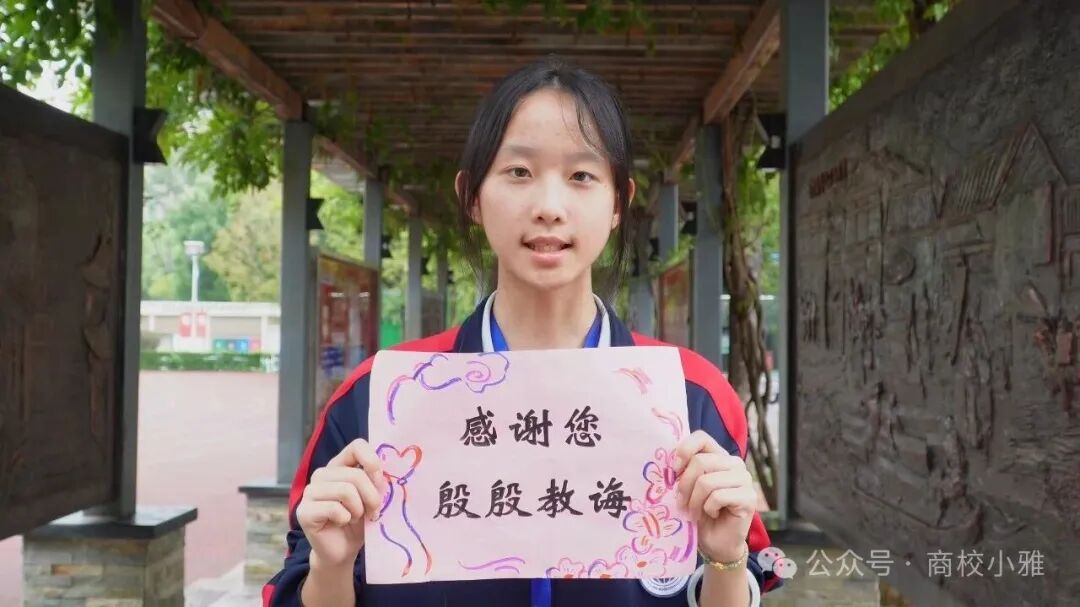 感谢您
殷殷教诲
公众号·商校小雅